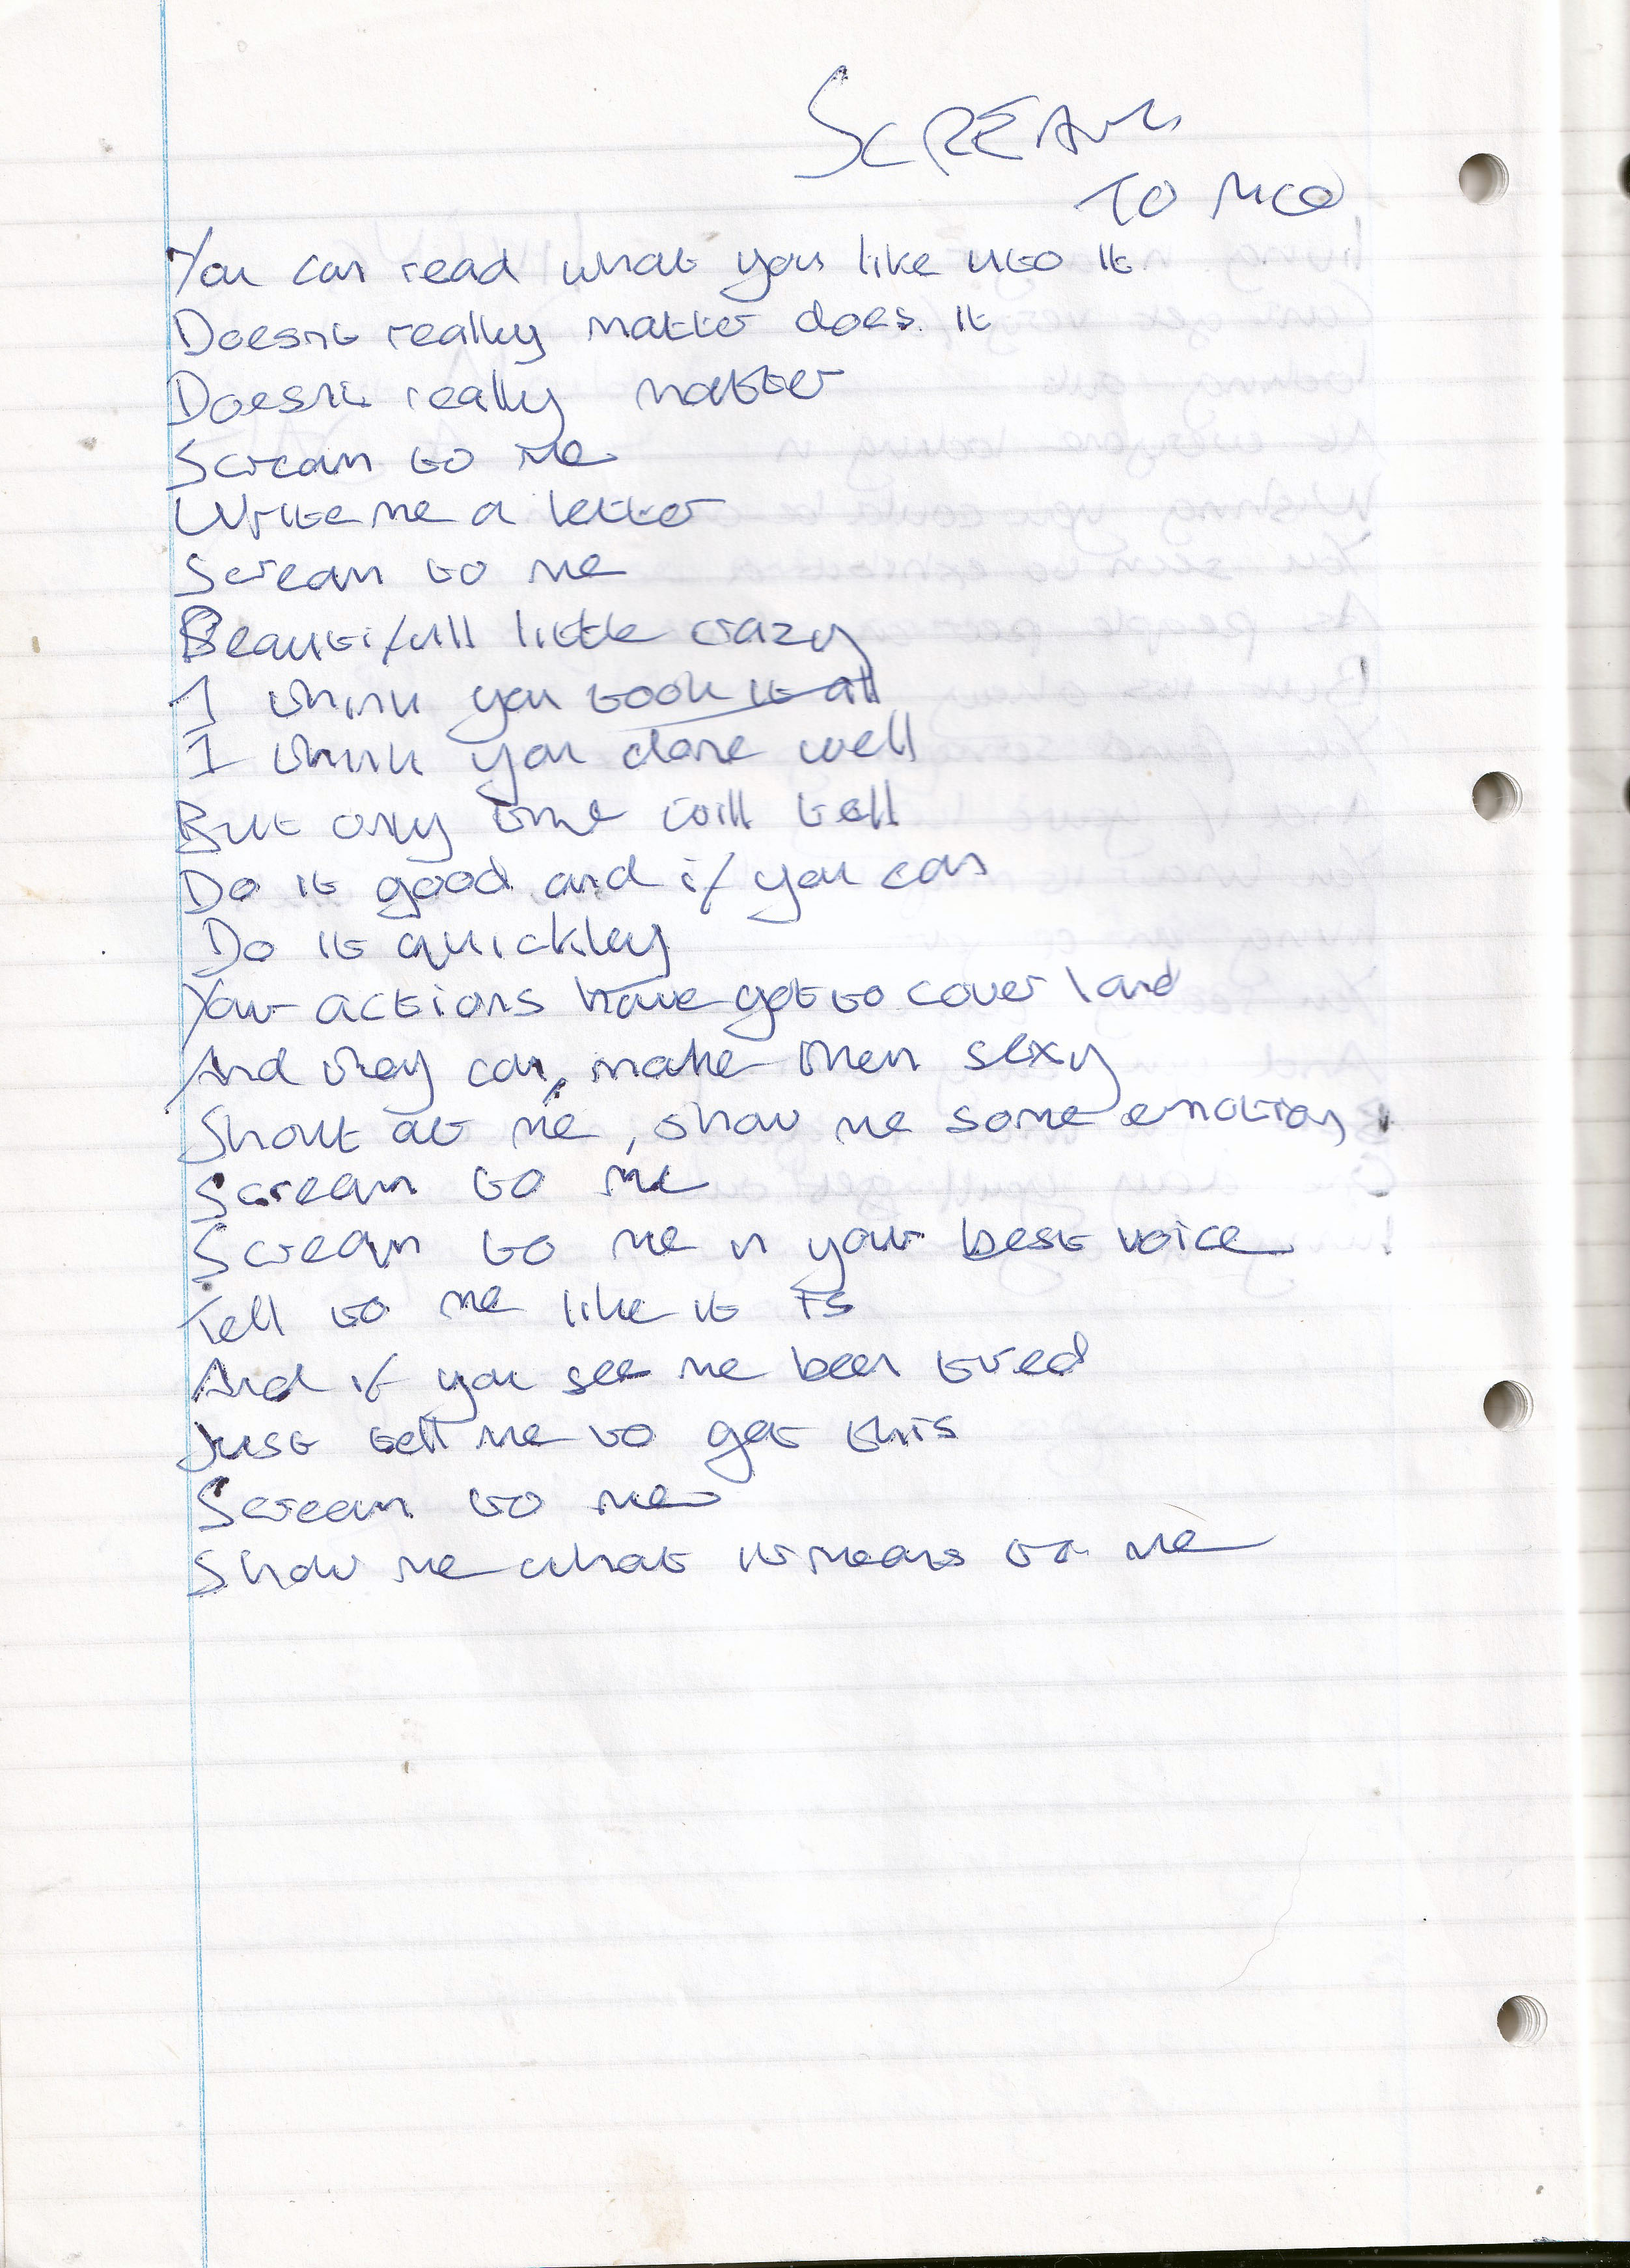 SCREAM
TO ME
You can read what you like into it
Doesn't really matter does it
Doesn't really matter
Scream to me
Write me a letter
Scream to me
Beautifull little crazy
I think you took it all
I think you done well
But only time will tell
Do it good and if you can
Do it quickley
Your actions have got to cover land
And they can, make them sexy
Shout at me, show me some emotion
Scream to me
Scream to me in your best voice
Tell to me like it is
And if you see me been tired
Just tell me to get this
Scream to me
Show me what it means to me